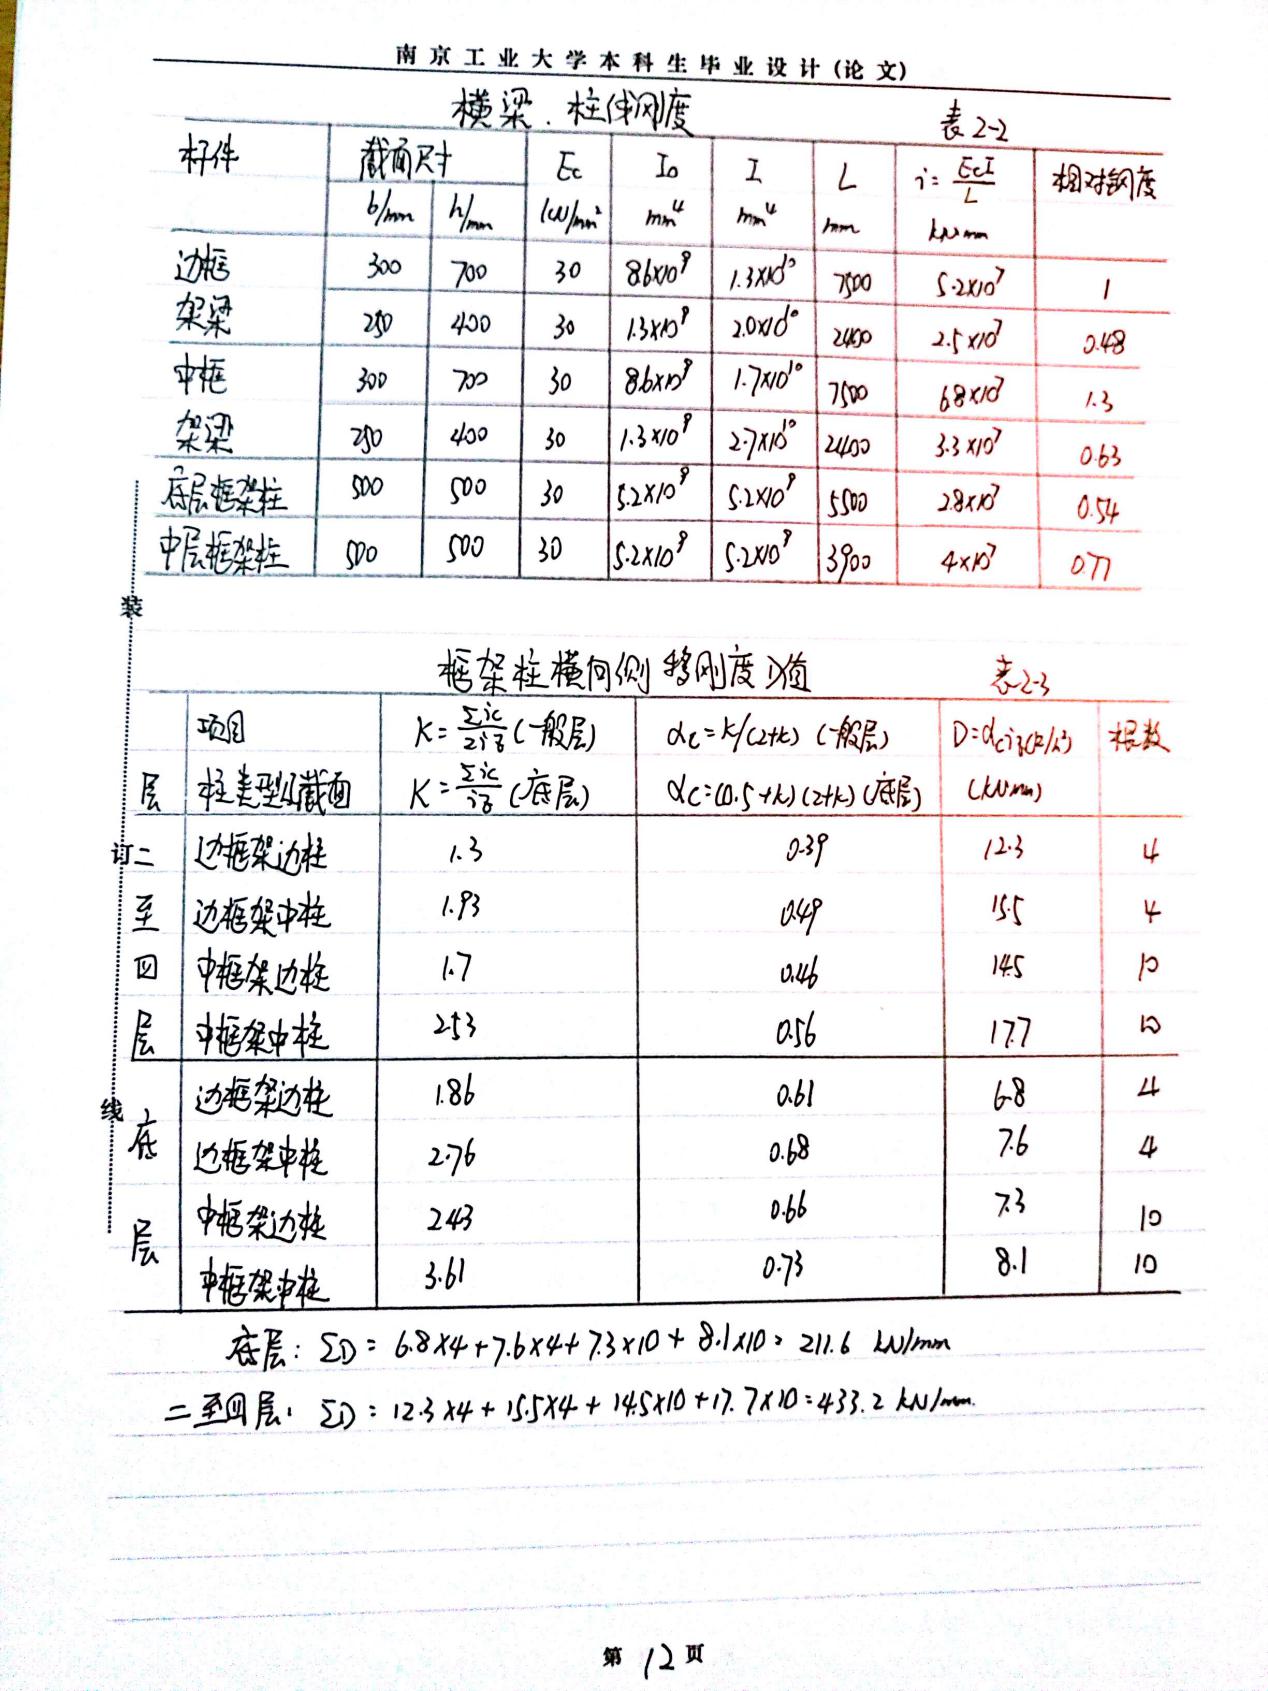 南京工业大学本科生毕业设计(论文)
横梁、柱线刚度 表2-2
杆件 截面尺寸 Ec I₀ I L i=EcI/L 相对钢度
b/mm h/mm kN/mm² mm⁴ mm⁴ mm kN·mm
边框 300 700 30 8.6×10⁹ 1.3×10¹⁰ 7500 5.2×10⁷ 1
架梁 250 400 30 1.3×10⁹ 2.0×10¹⁰ 2400 2.5×10⁷ 0.48
中框 300 700 30 8.6×10⁹ 1.7×10¹⁰ 7500 6.8×10⁷ 1.3
架梁 250 400 30 1.3×10⁹ 2.7×10¹⁰ 2400 3.3×10⁷ 0.63
底层框架柱 500 500 30 5.2×10⁹ 5.2×10⁹ 5500 2.8×10⁷ 0.54
中层框架柱 500 500 30 5.2×10⁹ 5.2×10⁹ 3900 4×10⁷ 0.77
装
框架柱横向侧移刚度D值 表2-3
项目 K=Σic/2iB(一般层) αc=K/(2+K) (一般层) 根数
层 柱类型以截面 K=Σic/iB(底层) αc=(0.5+K)(2+K)(底层) (kN·mm)
订 二 边框架边柱 1.3 0.39 12.3 4
至 边框架中柱 1.93 0.49 15.5 4
四 中框架边柱 1.7 0.46 14.5 10
层 中框架中柱 2.53 0.56 17.7 10
线 边框架边柱 1.86 0.61 6.8 4
底 边框架中柱 2.76 0.68 7.6 4
层 中框架边柱 2.43 0.66 7.3 10
中框架中柱 3.61 0.73 8.1 10
底层: ΣD=6.8×4+7.6×4+7.3×10+8.1×10=211.6 kN/mm
二至四层: ΣD=12.3×4+15.5×4+14.5×10+17.7×10=433.2 kN/mm.
第12页